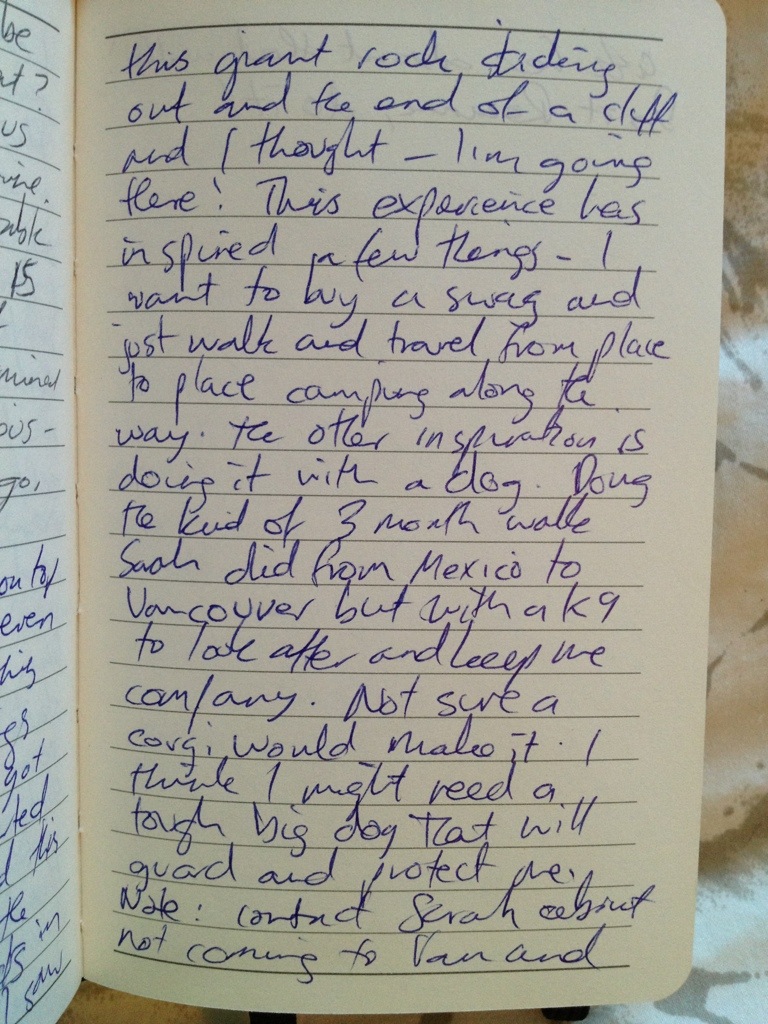 be
at?
us
15
ous-
go,
on top
even
got
in
saw
this giant rock sticking
out and the end of a cliff
and I thought - I'm going
there! This experience has
inspired a few things - I
want to buy a swag and
just walk and travel from place
to place camping along the
way. the other inspiration is
doing it with a dog. Doing
the kind of 3 month walk
Sarah did from Mexico to
Vancouver but with a K9
to look after and keep me
company. Not sure a
corgi would make it. I
think I might need a
tough big dog that will
guard and protect me.
Note: contact Sarah about
not coming to Van and